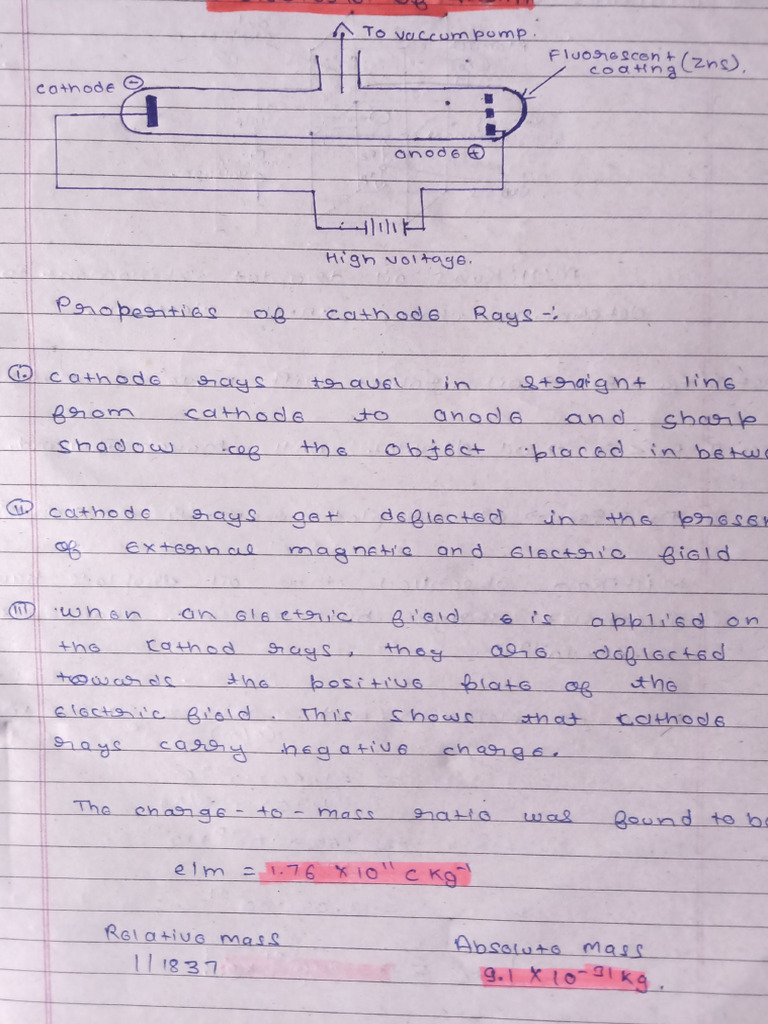 To vaccum pump.
Fluorescent
coating (zns).
cathode ⊖
anode ⊕
High voltage.
Properties of cathode Rays -:
(i.) cathode rays travel in straight line
from cathode to anode and sharp
shadow of the object placed in betwe
(ii) cathode rays get deflected in the presen
of external magnetic and electric field
(iii) when an electric field is applied on
the cathod rays, they are deflected
towards the positive plate of the
electric field. This shows that cathode
rays carry negative charge.
The charge-to-mass ratio was found to be
e/m = 1.76 × 10¹¹ c kg⁻¹
Relative mass
1/1837
Absolute mass
9.1 × 10⁻³¹ kg.